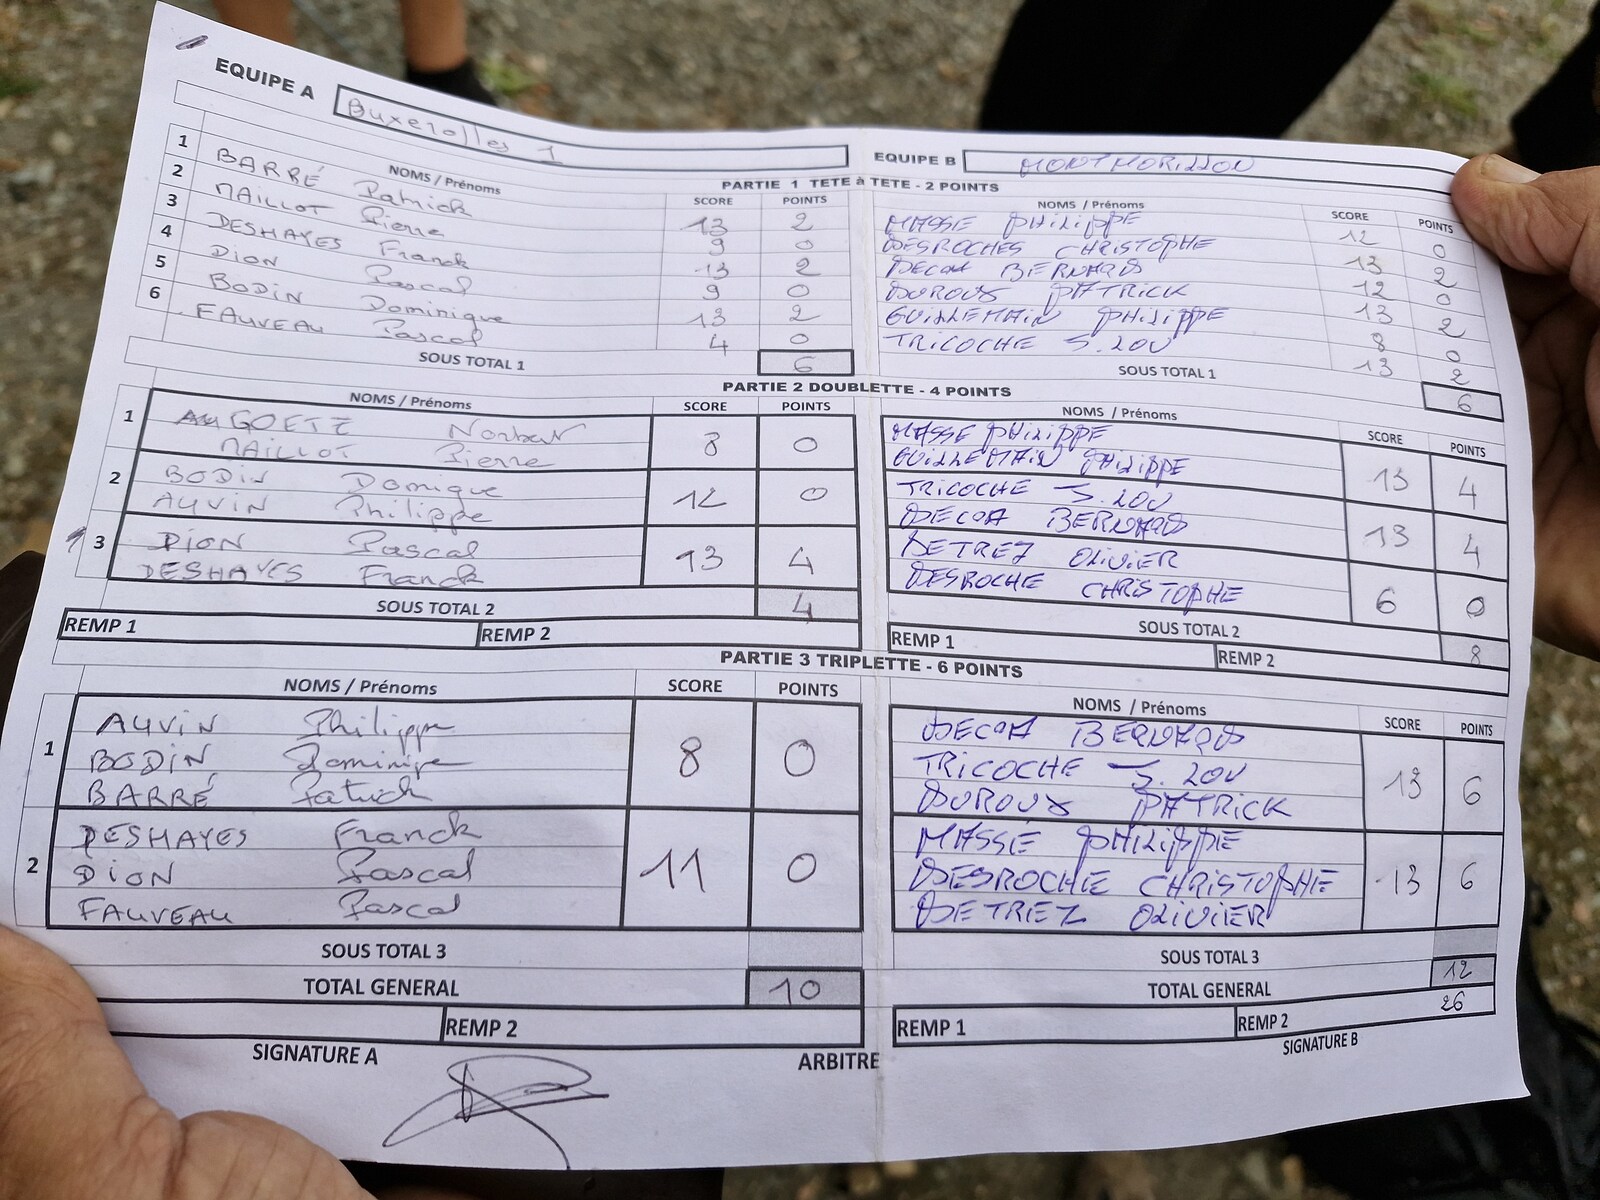 EQUIPE A Buxerolles 1
EQUIPE B MONTMORILLON
PARTIE 1 TETE à TETE - 2 POINTS
NOMS / Prénoms SCORE POINTS
1 BARRÉ Patrick 13 2
2 MAILLOT Pierre 9 0
3 DESHAYES Franck 13 2
4 DION Pascal 9 0
5 BODIN Dominique 13 2
6 FAUVEAU Pascal 4 0
SOUS TOTAL 1 6
NOMS / Prénoms SCORE POINTS
MASSE PHILIPPE 12 0
DESROCHES CHRISTOPHE 13 2
DECOA BERNARD 12 0
DUROUX PATRICK 13 2
GUILLEMAIN PHILIPPE 8 0
TRICOCHE J. LOU 13 2
SOUS TOTAL 1 6
PARTIE 2 DOUBLETTE - 4 POINTS
NOMS / Prénoms SCORE POINTS
1 AUGOETZ Norbert 8 0
MAILLOT Pierre
2 BODIN Domique 12 0
AUVIN Philippe
3 DION Pascal 13 4
DESHAYES Franck
SOUS TOTAL 2 4
REMP 1 REMP 2
NOMS / Prénoms SCORE POINTS
MASSE PHILIPPE 13 4
GUILLEMAIN PHILIPPE
TRICOCHE J. LOU 13 4
DECOA BERNARD
DETREZ OLIVIER 6 0
DESROCHE CHRISTOPHE
SOUS TOTAL 2 8
REMP 1 REMP 2
PARTIE 3 TRIPLETTE - 6 POINTS
NOMS / Prénoms SCORE POINTS
1 AUVIN Philippe 8 0
BODIN Dominique
BARRÉ Patrick
2 DESHAYES Franck 11 0
DION Pascal
FAUVEAU Pascal
SOUS TOTAL 3
TOTAL GENERAL 10
REMP 2
SIGNATURE A
NOMS / Prénoms SCORE POINTS
DECOA BERNARD 13 6
TRICOCHE J. LOU
DUROUX PATRICK
MASSE PHILIPPE 13 6
DESROCHE CHRISTOPHE
DETREZ OLIVIER
SOUS TOTAL 3 12
TOTAL GENERAL 26
REMP 1 REMP 2
ARBITRE
SIGNATURE B